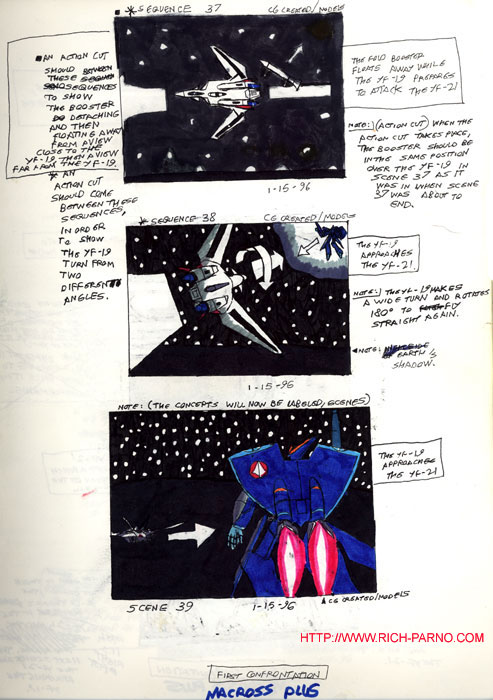 * SEQUENCE 37
CG CREATED/MODELS
AN ACTION CUT
SHOULD BETWEEN
THESE
SEQUENCES
TO SHOW
THE BOOSTER
DETACHING
AND THEN
FLOATING AWAY
FROM A VIEW
CLOSE TO THE
YF-19 THEN A VIEW
FAR FROM THE YF-19.
* AN
ACTION CUT
SHOULD COME
BETWEEN THESE
SEQUENCES,
IN ORDER
TO SHOW
THE YF-19
TURN FROM
TWO
DIFFERENT
ANGLES.
THE FOLD BOOSTER
FLOATS AWAY WHILE
THE YF-19 PREPARES
TO ATTACK THE YF-21
NOTE:) (ACTION CUT) WHEN THE
ACTION CUT TAKES PLACE,
THE BOOSTER SHOULD BE
IN THE SAME POSITION
OVER THE YF-19 IN
SCENE 37 AS IT
WAS IN WHEN SCENE
37 WAS ABOUT TO
END.
1-15-96
* SEQUENCE 38
CG CREATED/MODELS
THE YF-19
APPROACHES
THE YF-21.
NOTE:) THE YF-19 MAKES
A WIDE TURN AND ROTATES
180° TO FLY
STRAIGHT AGAIN.
NOTE:
EARTH'S
SHADOW.
1-15-96
NOTE: (THE CONCEPTS WILL NOW BE LABELED, SCENES)
THE YF-19
APPROACHES
THE YF-21
SCENE 39
1-15-96
CG CREATED/MODELS
HTTP://WWW.RICH-PARNO.COM
FIRST CONFRONTATION
MACROSS PLUS